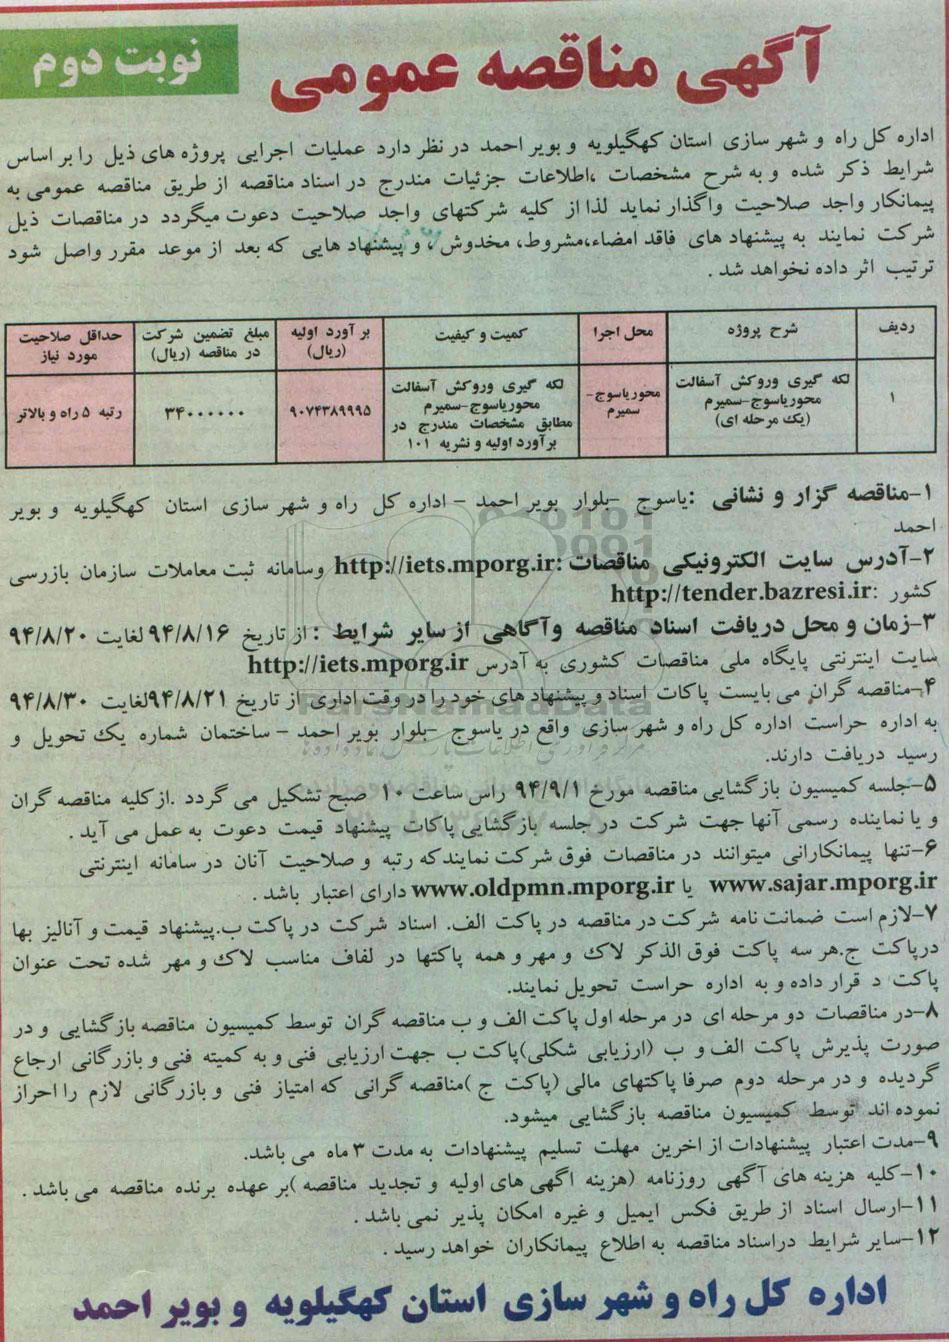 آگهی مناقصه عمومی
نوبت دوم
اداره کل راه و شهر سازی استان کهگیلویه و بویر احمد در نظر دارد عملیات اجرایی پروژه های ذیل را بر اساس
شرایط ذکر شده و به شرح مشخصات ،اطلاعات جزئیات مندرج در اسناد مناقصه از طریق مناقصه عمومی به
پیمانکار واجد صلاحیت واگذار نماید لذا از کلیه شرکتهای واجد صلاحیت دعوت میگردد در مناقصات ذیل
شرکت نمایند به پیشنهاد های فاقد امضاء،مشروط، مخدوش ، و پیشنهاد هایی که بعد از موعد مقرر واصل شود
ترتیب اثر داده نخواهد شد .
ردیف
شرح پروژه
محل اجرا
کمیت و کیفیت
بر آورد اولیه
(ریال)
مبلغ تضمین شرکت
در مناقصه (ریال)
حداقل صلاحیت
مورد نیاز
۱
لکه گیری وروکش آسفالت
محوریاسوج-سمیرم
(یک مرحله ای)
محوریاسوج-
سمیرم
لکه گیری وروکش آسفالت
محوریاسوج-سمیرم
مطابق مشخصات مندرج در
برآورد اولیه و نشریه ۱۰۱
۹۰۷۴۳۸۹۹۹۵
۳۴۰۰۰۰۰۰۰
رتبه ۵ راه و بالاتر
۱-مناقصه گزار و نشانی :یاسوج -بلوار بویر احمد - اداره کل راه و شهر سازی استان کهگیلویه و بویر
احمد
۲-آدرس سایت الکترونیکی مناقصات :http://iets.mporg.ir وسامانه ثبت معاملات سازمان بازرسی
کشور :http://tender.bazresi.ir
۳-زمان و محل دریافت اسناد مناقصه وآگاهی از سایر شرایط : از تاریخ ۹۴/۸/۱۶ لغایت ۹۴/۸/۲۰
سایت اینترنتی پایگاه ملی مناقصات کشوری به آدرس http://iets.mporg.ir
۴-مناقصه گران می بایست پاکات اسناد و پیشنهاد های خود را در وقت اداری از تاریخ ۹۴/۸/۲۱لغایت ۹۴/۸/۳۰
به اداره حراست اداره کل راه و شهر سازی واقع در یاسوج -بلوار بویر احمد - ساختمان شماره یک تحویل و
رسید دریافت دارند.
۵-جلسه کمیسیون بازگشایی مناقصه مورخ ۹۴/۹/۱ راس ساعت ۱۰ صبح تشکیل می گردد .از کلیه مناقصه گران
و یا نماینده رسمی آنها جهت شرکت در جلسه بازگشایی پاکات پیشنهاد قیمت دعوت به عمل می آید .
۶-تنها پیمانکارانی میتوانند در مناقصات فوق شرکت نمایند که رتبه و صلاحیت آنان در سامانه اینترنتی
www.sajar.mporg.ir یا www.oldpmn.mporg.ir دارای اعتبار باشد .
۷-لازم است ضمانت نامه شرکت در مناقصه در پاکت الف. اسناد شرکت در پاکت ب.پیشنهاد قیمت و آنالیز بها
درپاکت ج.هر سه پاکت فوق الذکر لاک و مهر و همه پاکتها در لفاف مناسب لاک و مهر شده تحت عنوان
پاکت د قرار داده و به اداره حراست تحویل نمایند.
۸-در مناقصات دو مرحله ای در مرحله اول پاکت الف و ب مناقصه گران توسط کمیسیون مناقصه بازگشایی و در
صورت پذیرش پاکت الف و ب (ارزیابی شکلی)پاکت ب جهت ارزیابی فنی و به کمیته فنی و بازرگانی ارجاع
گردیده و در مرحله دوم صرفا پاکتهای مالی (پاکت ج )مناقصه گرانی که امتیاز فنی و بازرگانی لازم را احراز
نموده اند توسط کمیسیون مناقصه بازگشایی میشود.
۹-مدت اعتبار پیشنهادات از اخرین مهلت تسلیم پیشنهادات به مدت ۳ ماه می باشد.
۱۰-کلیه هزینه های آگهی روزنامه (هزینه اگهی های اولیه و تجدید مناقصه )بر عهده برنده مناقصه می باشد .
۱۱-ارسال اسناد از طریق فکس ایمیل و غیره امکان پذیر نمی باشد .
۱۲-سایر شرایط دراسناد مناقصه به اطلاع پیمانکاران خواهد رسید .
اداره کل راه و شهر سازی استان کهگیلویه و بویر احمد
ParsNamadData